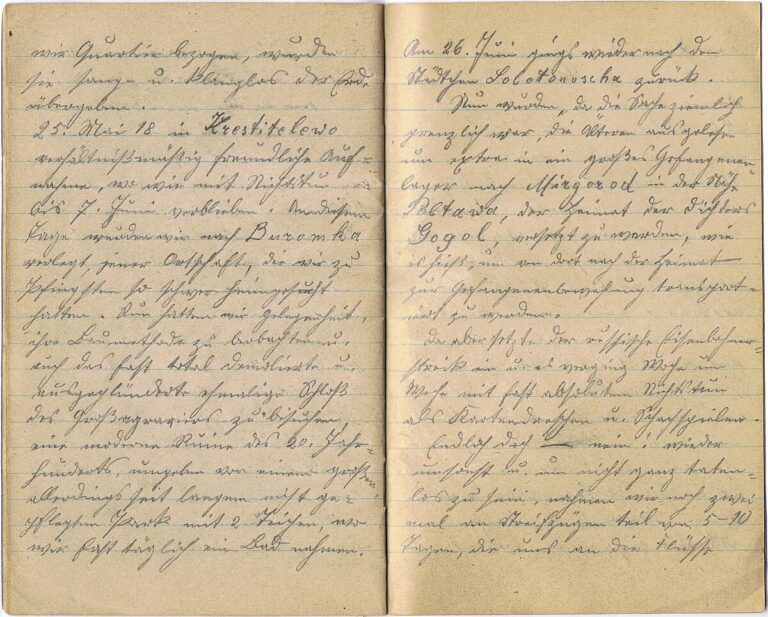 wir Quartier bezogen, wurden
sie sang- u. klanglos der Erde
übergeben.
25. Mai 18 in Krestitelewo
verhältnißmäßig freundliche Auf-
nahme, wo wir mit Nichtstun
bis 7. Juni verblieben. An diesem
Tage wurden wir nach Buromka
verlegt, jener Ortschaft, die wir zu
Pfingsten so schwer heimgesucht
hatten. Nun hatten wir Gelegenheit,
ihre Baumethode zu beobachten u.
auch das fast total demolierte u.
ausgeplünderte ehemalige Schloß
des Großagrariers zu besuchen,
eine moderne Ruine des 20. Jahr-
hunderts, umgeben von einem großen
allerdings seit langem nicht ge-
pflegten Park mit 2 Teichen, wo
wir fast täglich ein Bad nahmen.
Am 26. Juni gings wieder nach dem
Städtchen Solotonoscha zurück.
Nun wurden, da die Sache ziemlich
brenzlich war, die Älteren ausgelesen
um extra in ein großes Gefangenen-
lager nach Mirgorod in der Nähe
Poltawa, der Heimat des Dichters
Gogol, versetzt zu werden, wie
es hieß, um von dort nach der Heimat
zur Gefangenenbewachung transport-
iert zu werden.
Da aber setzte der russische Eisenbahner-
streik ein u. es verging Woche um
Woche mit fast absolutem Nichtstun
als Kartendreschen u. Schachspielen.
Endlich doch — nein! wieder
umsonst u. um nicht ganz taten-
los zu sein, nahmen wir noch zwei
mal an Streifzügen teil von 5-10
Tagen, die uns an die Flüsse